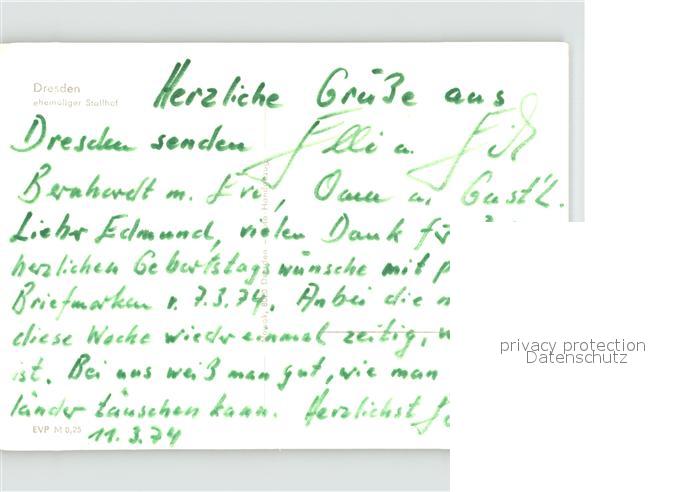 Dresden
ehemaliger Stallhof
Herzliche Grüße aus
Dresden senden Elli u.
Bernhardt m. Eve, Oma u. Gust'l.
Lieber Edmund, vielen Dank für
herzlichen Geburtstagswünsche mit
Briefmarken v. 7.3.74. Anbei die
diese Woche wieder einmal zeitig,
ist. Bei uns weiß man gut, wie man
länder täuschen kann. Herzlichst
EVP M 0,25
11.3.74
privacy protection
Datenschutz